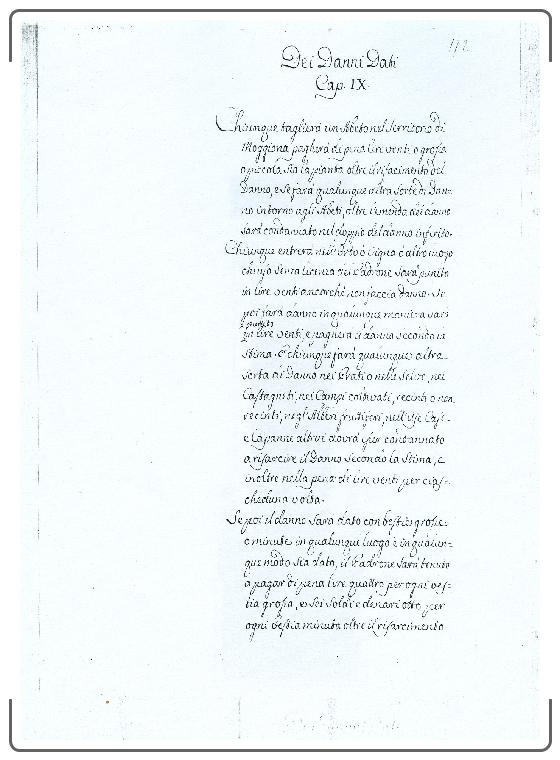 42
Dei Danni Dati
Cap. IX.
Chiunque taglierà un Abeto nel Territorio di
Moggiona pagherà di pena lire venti o grossa
o piccola sia la pianta oltre il rifacimento del
Danno, e se farà qualunque altra sorte di Dan-
no intorno agli Abeti, oltre l'emenda del danno
sarà condannato nel doppio del danno inferito.
Chiunque entrerà nell'Orto o Vigna o altro luogo
chiuso senza licenza del Padrone sarà punito
in lire venti ancorchè non faccia danno. Se
poi farà danno in qualunque maniera sarà
punito
in lire venti, e pagherà il danno secondo la
Stima. E chiunque farà qualunque altra
sorta di Danno nei Prati o nelle Selve, nei
Castagneti, nei Campi coltivati, recinti o non
recinti, negli Alberi fruttiferi, nelle Case
e Capanne altrui dovrà esser condannato
a risarcire il Danno secondo la Stima, e
inoltre nella pena di lire venti per cias-
cheduna volta.
Se poi il danno sarà dato con bestie grosse
o minute in qualunque luogo e in qualun-
que modo sia dato, il Padrone sarà tenuto
a pagar di pena lire quattro per ogni bes-
tia grossa, e sei soldi e denari otto per
ogni bestia minuta oltre il risarcimento